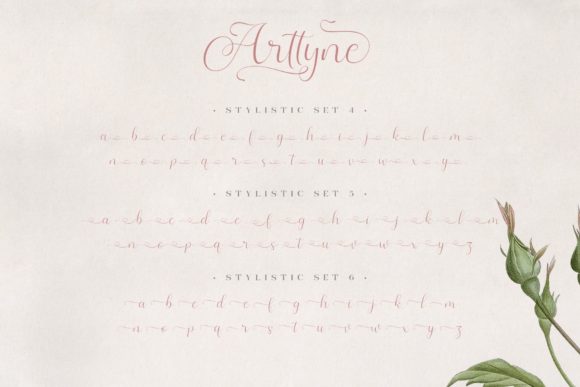 Arttyne
• STYLISTIC SET 4 •
a b c d e f g h i j k l m
n o p q r s t u v w x y
• STYLISTIC SET 5 •
a b c d e f g h i j k l m
n o p q r s t u v w x y z
• STYLISTIC SET 6 •
a b c d e f g h i j k l m
n o p q r s t u v w x y z